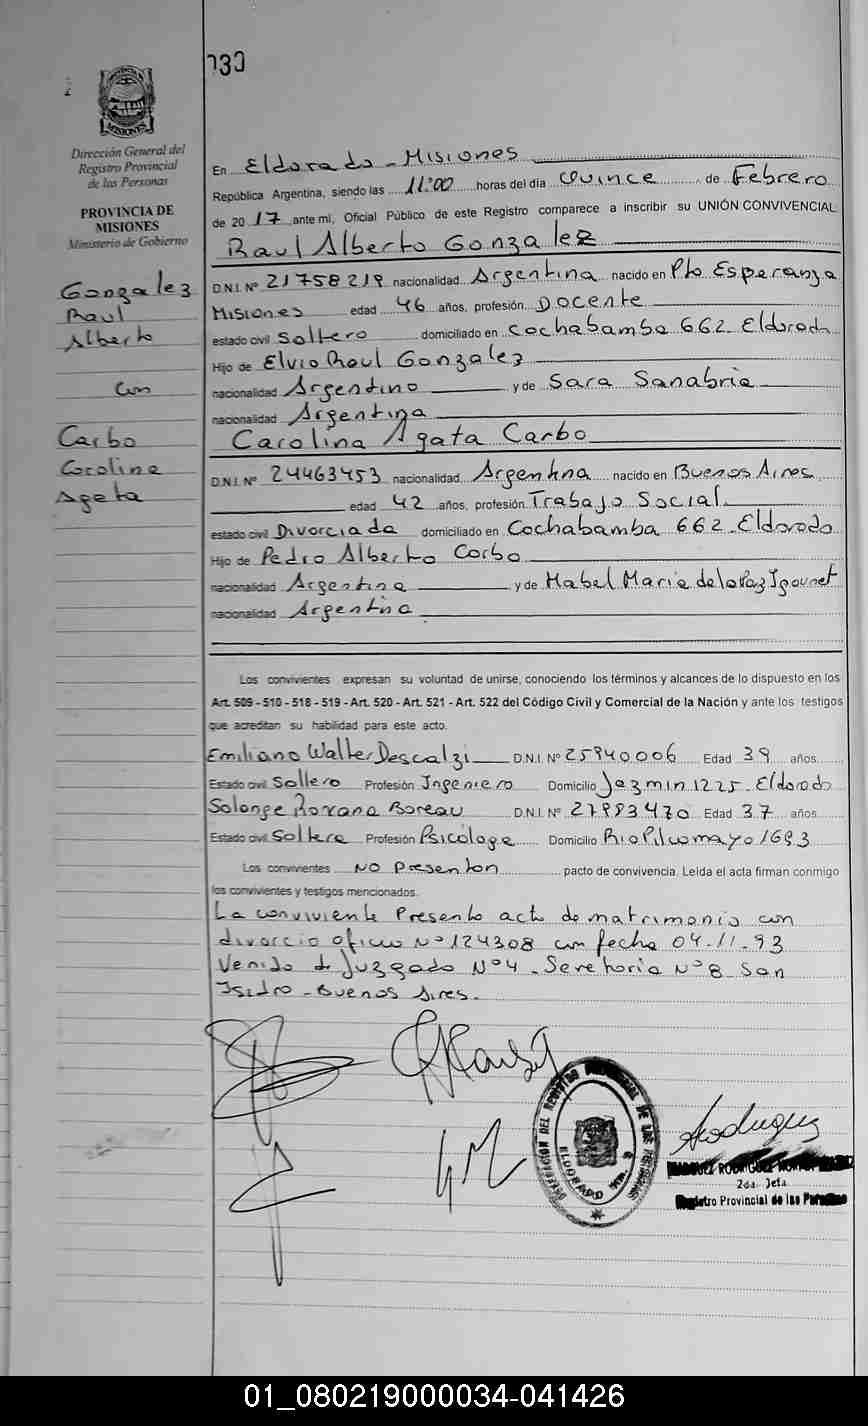 Dirección General del
Registro Provincial
de las Personas
PROVINCIA DE
MISIONES
Ministerio de Gobierno
Gonzalez
Raul
Alberto
con
Carbo
Carolina
Agata
En Eldorado - Misiones
República Argentina, siendo las 11:00 horas del día Quince de Febrero
de 2017 ante mí, Oficial Público de este Registro comparece a inscribir su UNIÓN CONVIVENCIAL
Raul Alberto Gonzalez
D.N.I. Nº 21758219 nacionalidad Argentina nacido en Pto Esperanza
Misiones edad 46 años, profesión Docente
estado civil Soltero domiciliado en Cochabamba 662. Eldorado
Hijo de Elvio Raul Gonzalez
nacionalidad Argentino y de Sara Sanabria
nacionalidad Argentina
Carolina Agata Carbo
D.N.I. Nº 24463453 nacionalidad Argentina nacido en Buenos Aires
edad 42 años, profesión Trabajo Social
estado civil Divorciada domiciliado en Cochabamba 662. Eldorado
Hijo de Pedro Alberto Carbo
nacionalidad Argentina y de Mabel Maria de la Paz
nacionalidad Argentina
Los convivientes expresan su voluntad de unirse, conociendo los términos y alcances de lo dispuesto en los
Art. 509 - 510 - 518 - 519 - Art. 520 - Art. 521 - Art. 522 del Código Civil y Comercial de la Nación y ante los testigos
que acreditan su habilidad para este acto.
Emiliano Walter Descalzi D.N.I. Nº 25940006 Edad 39 años.
Estado civil Soltero Profesión Ingeniero Domicilio Jazmin 1225. Eldorado
Solange Roxana Boreau D.N.I. Nº 27983470 Edad 37 años
Estado civil Soltera Profesión Psicologa Domicilio Rio Pilcomayo 1693
Los convivientes NO Presentan pacto de convivencia. Leída el acta firman conmigo
los convivientes y testigos mencionados.
La conviviente Presento acta de matrimonio con
divorcio oficio Nº 124308 con fecha 04.11.93
Venido de Juzgado Nº 4 - Secretoria Nº 8 San
Isidro - Buenos Aires.
DELEGACION DEL REGISTRO PROVINCIAL DE LAS PERSONAS
ELDORADO
2da. Jefa
Registro Provincial de las Personas
01_080219000034-041426